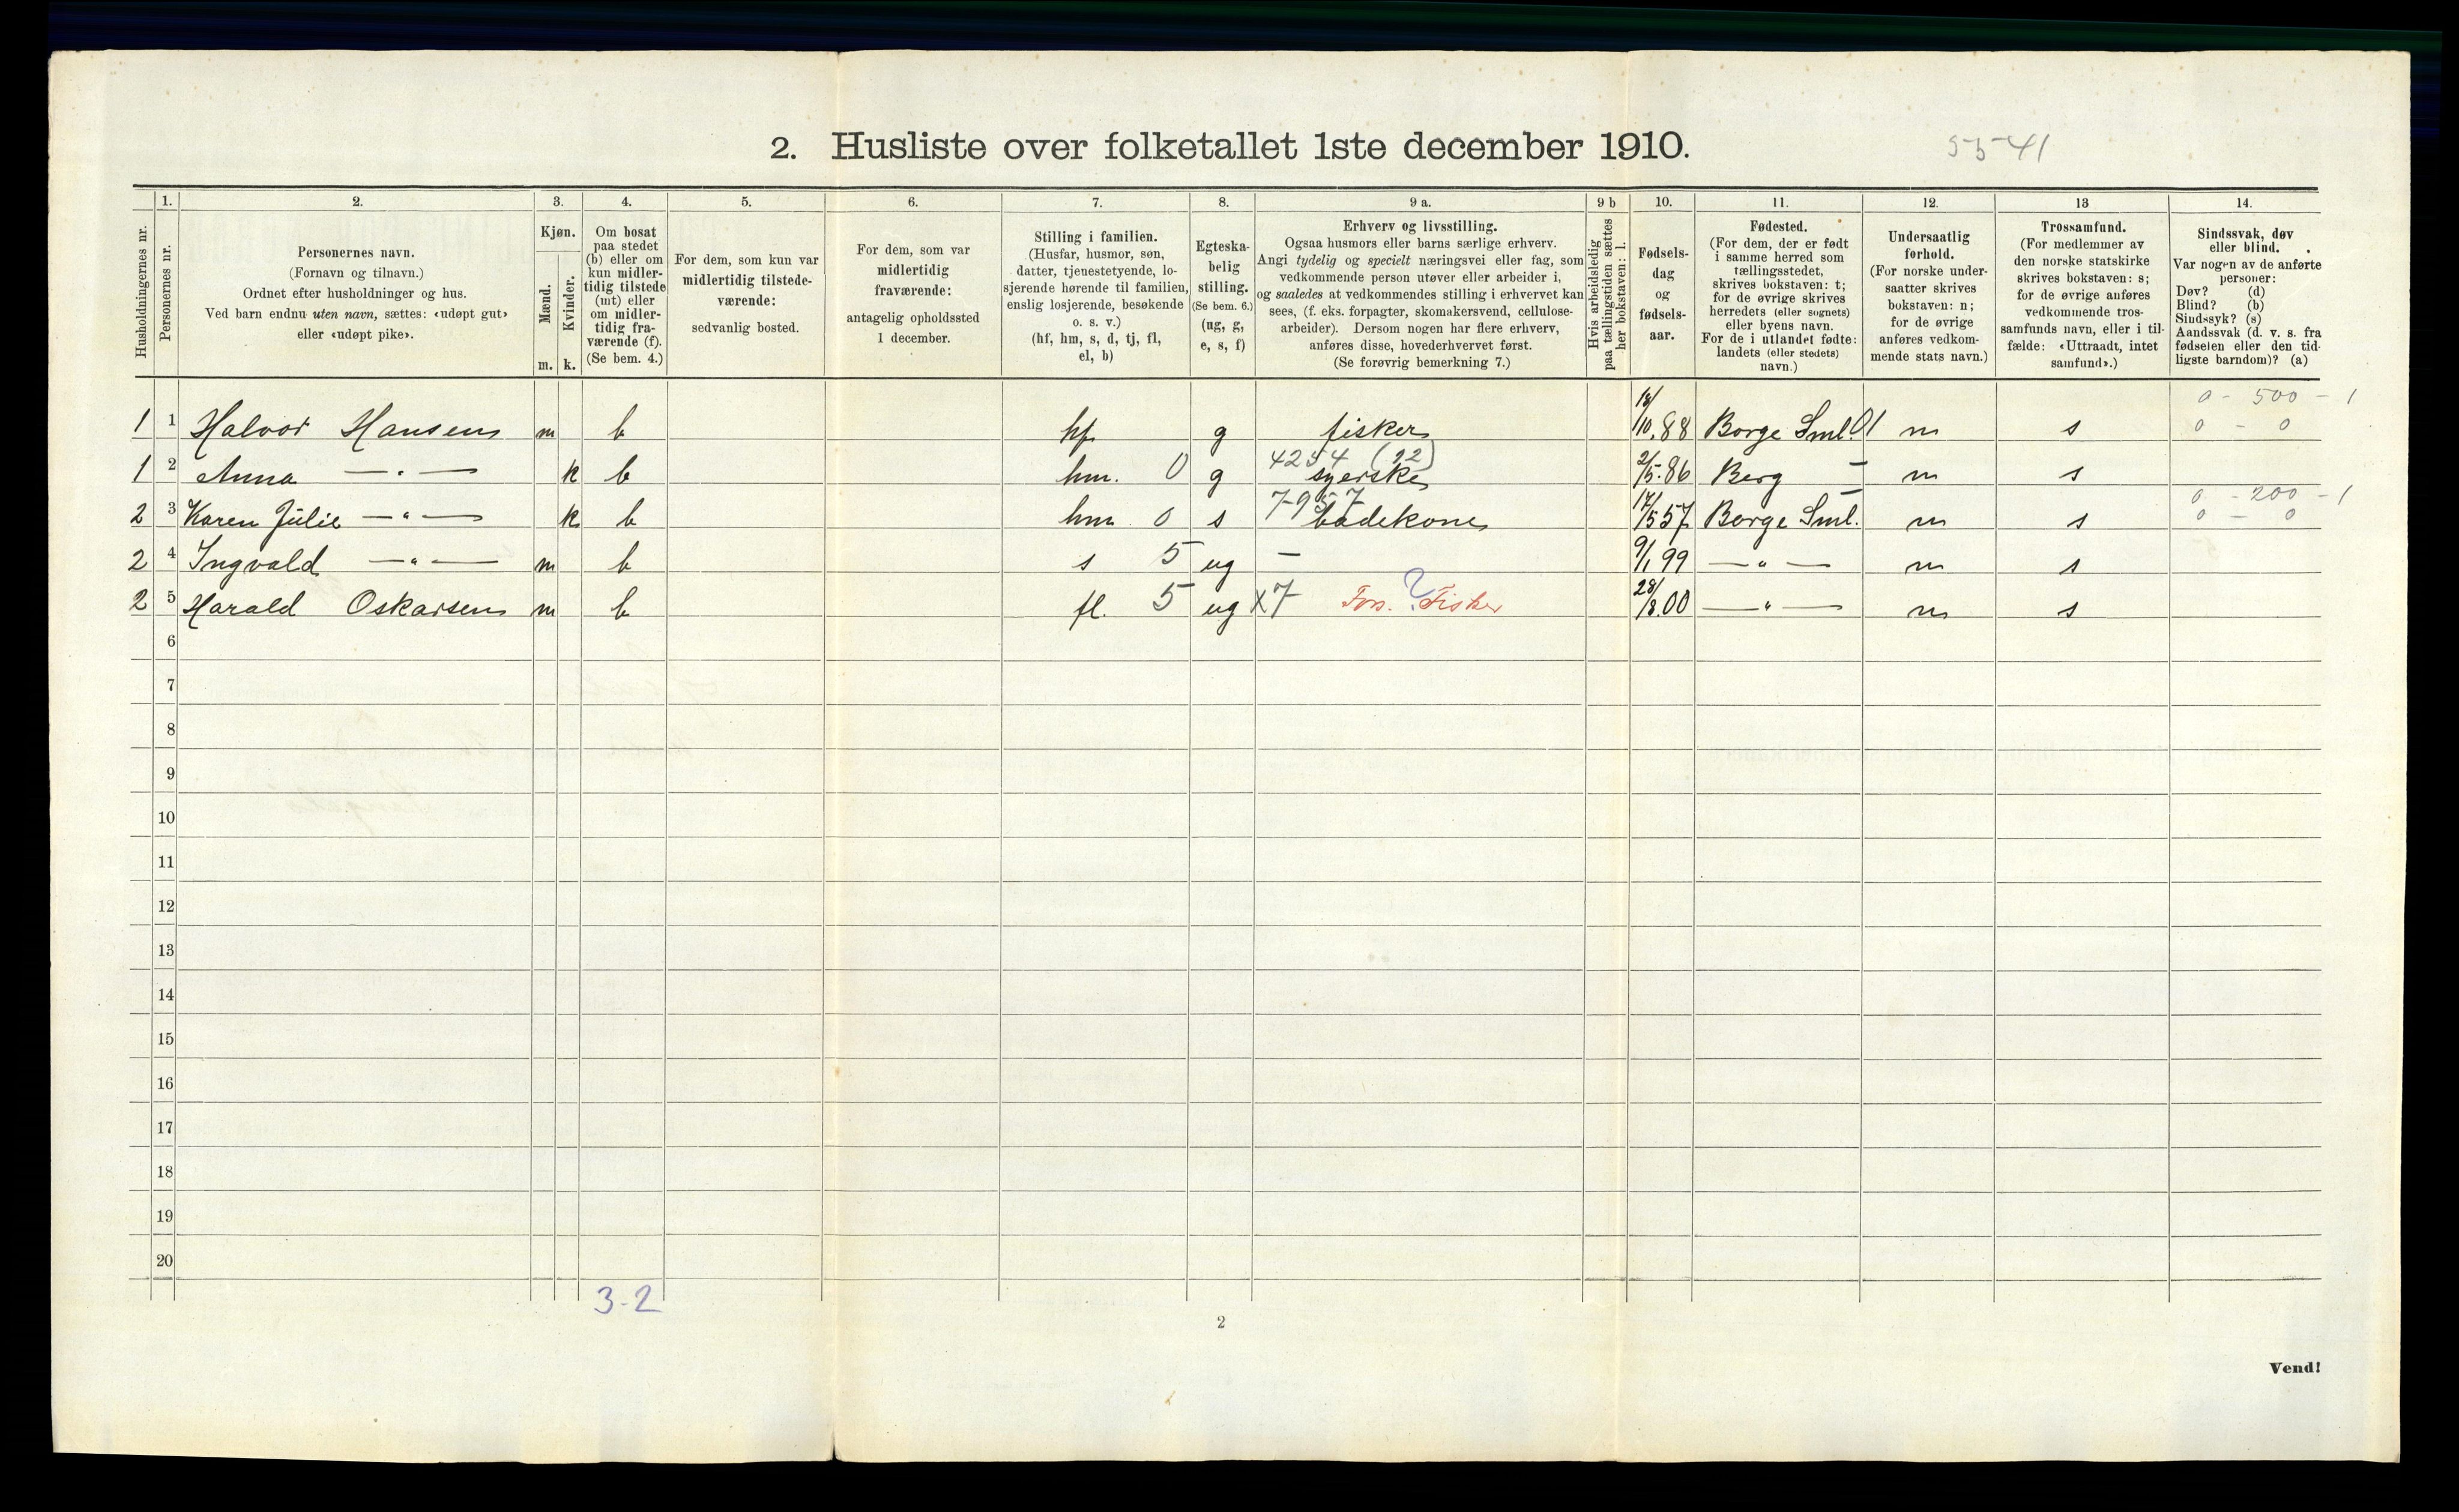 2. Husliste over folketallet 1ste december 1910.
55-41
Husholdningernes nr.
1.
Personernes nr.
2.
Personernes navn.
(Fornavn og tilnavn.)
Ordnet efter husholdninger og hus.
Ved barn endnu uten navn, sættes: «udøpt gut»
eller «udøpt pike».
3.
Kjøn.
Mænd.
Kvinder.
m. k.
4.
Om bosat
paa stedet
(b) eller om
kun midler-
tidig tilstede
(mt) eller
om midler-
tidig fra-
værende (f).
(Se bem. 4.)
5.
For dem, som kun var
midlertidig tilstede-
værende:
sedvanlig bosted.
6.
For dem, som var
midlertidig
fraværende:
antagelig opholdssted
1 december.
7.
Stilling i familien.
(Husfar, husmor, søn,
datter, tjenestetyende, lo-
sjerende hørende til familien,
enslig losjerende, besøkende
o. s. v.)
(hf, hm, s, d, tj, fl,
el, b)
8.
Egteska-
belig
stilling.
(Se bem. 6.)
(ug, g,
e, s, f)
9 a.
Erhverv og livsstilling.
Ogsaa husmors eller barns særlige erhverv.
Angi tydelig og specielt næringsvei eller fag, som
vedkommende person utøver eller arbeider i,
og saaledes at vedkommendes stilling i erhvervet kan
sees, (f. eks. forpagter, skomakersvend, cellulose-
arbeider). Dersom nogen har flere erhverv,
anføres disse, hovederhvervet først.
(Se forøvrig bemerkning 7.)
9 b
Hvis arbeidsledig
paa tællingstiden sættes
her bokstaven: l.
10.
Fødsels-
dag
og
fødsels-
aar.
11.
Fødested.
(For dem, der er født
i samme herred som
tællingsstedet,
skrives bokstaven: t;
for de øvrige skrives
herredets (eller sognets)
eller byens navn.
For de i utlandet fødte:
landets (eller stedets)
navn.)
12.
Undersaatlig
forhold.
(For norske under-
saatter skrives
bokstaven: n;
for de øvrige
anføres vedkom-
mende stats navn.)
13
Trossamfund.
(For medlemmer av
den norske statskirke
skrives bokstaven: s;
for de øvrige anføres
vedkommende tros-
samfunds navn, eller i til-
fælde: «Uttraadt, intet
samfund».)
14.
Sindssvak, døv
eller blind.
Var nogen av de anførte
personer:
Døv? (d)
Blind? (b)
Sindssyk? (s)
Aandssvak (d. v. s. fra
fødselen eller den tid-
ligste barndom)? (a)
0 - 500 - 1
1 1 Halvor Hansen m b hf g fisker 18/10.88 Borge Sml. 01 n s 0 - 0
4254 (12)
1 2 Anna —„— k b hm. 0 g syerske 2/5.86 Berg — n s
7957 0 - 200 - 1
2 3 Karen Julie —„— k b hm 0 s badekone 17/5 57 Borge Sml. n s 0 - 0
2 4 Ingvald —„— m b s 5 ug — 9/1 99 —„— n s
2 5 Harald Oskarsen m b fl. 5 ug x7 Fors. ? Fisker 28/8.00 —„— n s
6
7
8
9
10
11
12
13
14
15
16
17
18
19
20
3-2
2
Vend!